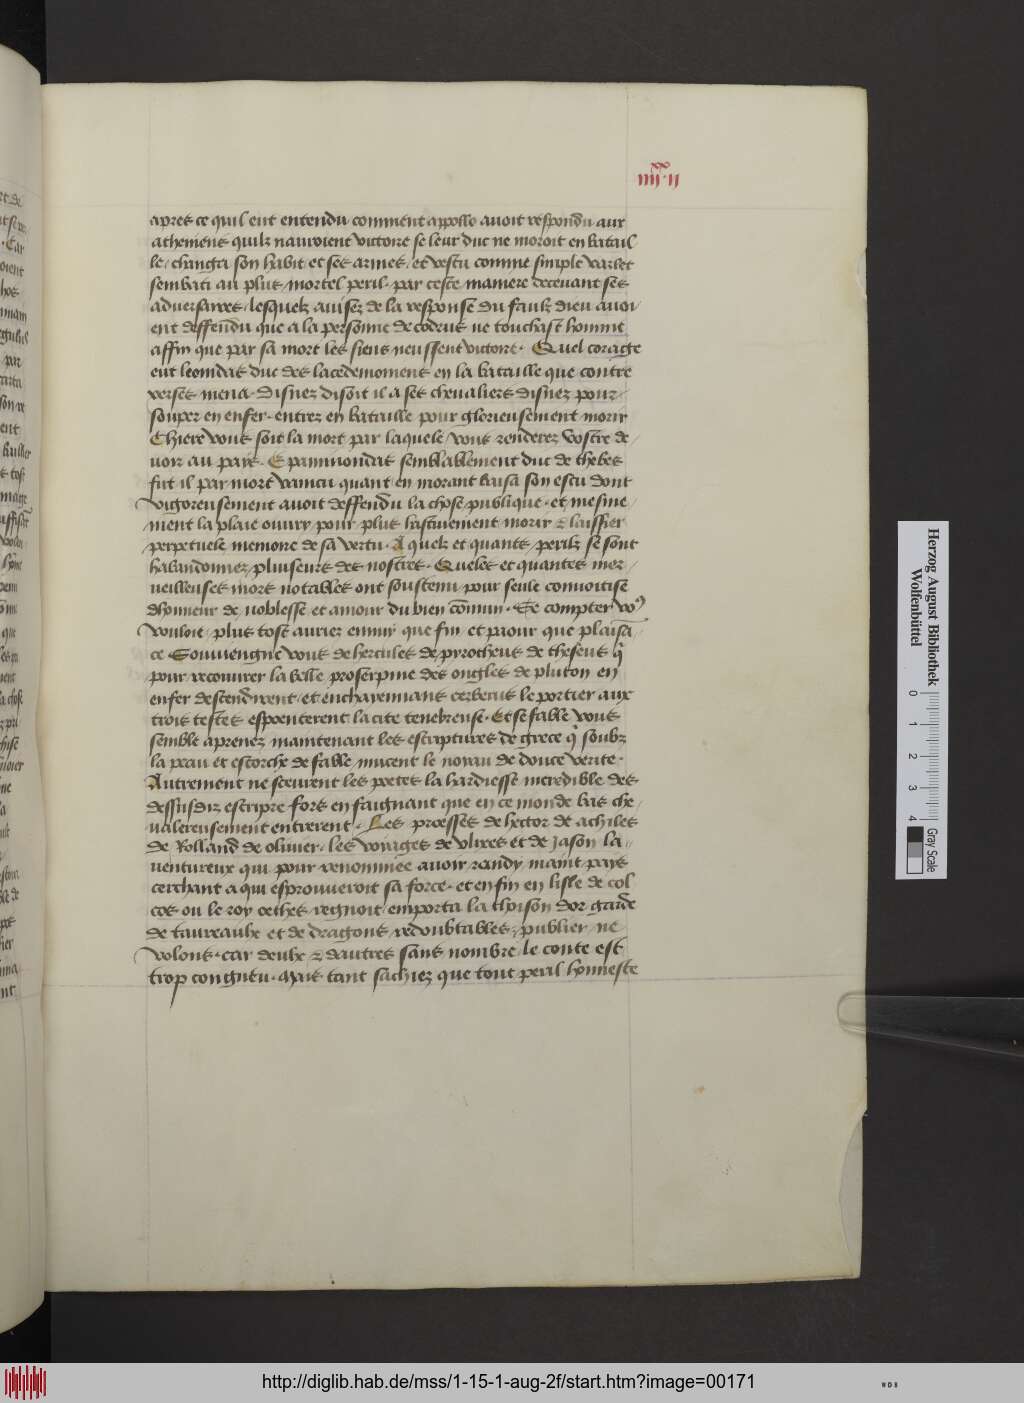 iiii.xx ii
apres ce quil eut entendu comment appollo auoit respondu aux
atheniens quilz nauroient victoire se leur duc ne moroit en batail
le / changa son habit et ses armes / et vestu comme simple varlet
sembati au plus mortel peril . par ceste maniere deceuant ses
aduersaires / lesquelz auisez de la response du faulz dieu auoi
ent deffendu que a la personne de codrus ne touchast homme
affin que par sa mort les siens neussent victoire . Quel corage
eut leonidas duc des lacedemoniens en la bataille que contre
xerses mena . Disnez disoit il a ses cheualiers disnez pour
souper en enfer . entrez en bataille pour glorieusement morir
Chiere vous soit la mort par laquele vous renderez vostre de /
uoir au pays . Epaminondas semblablement duc de thebes
fut il par mort vaincu quant en morant baisa son escu dont
vigoreusement auoit deffendu la chose publique . et mesme /
ment la plaie ouury pour plus hastiuement morir & laissier
perpetuele memoire de sa vertu . A quelz et quants perilz se sont
habandonnez pluiseurs des nostres . Queles et quantes mer /
ueilleuses mors notables ont soustenu pour seule conuoitise
dhonneur de noblesse et amour du bien cōmun . Se compter vo9
vouloie / plus tost auriez ennuy que fin et paour que plaisā
ce Souuiengne vous de hercules de pyrotheus de theseus q̄
pour recouurer la belle proserpine des ongles de pluton en
enfer descendirent / et encharennans cerberus le portier aux
trois testes espoenterent la cite tenebreuse . Et se fable vous
semble aprenez maintenant les escriptures de grece q̄ soubz
la peau et escorche de fable mucent le noyau de douce verite .
Autrement ne sceurent les poetes la hardiesse incredible des
dessusdiz escripre fors en faignant que en ce monde bas che /
ualereusement entrerent . Les proesses de hector de achiles
de Rolland de oliuier . les voyages de vlixes et de Jason la /
ventureux qui pour renommee auoir randy maint pays
cerchant a qui esprouueroit sa force . et en fin en lisle de col
cos ou le roy oethes regnoit emporta la thoison dor garde
de taureaulx et de dragons redoubtables / publier ne
volons . car deulx & dautres sans nombre le conte est
trop congneu . Mais tant sachiez que tout peril honneste
Herzog August Bibliothek
Wolfenbüttel
0 1 2 3 4
Gray Scale
http://diglib.hab.de/mss/1-15-1-aug-2f/start.htm?image=00171
WDB